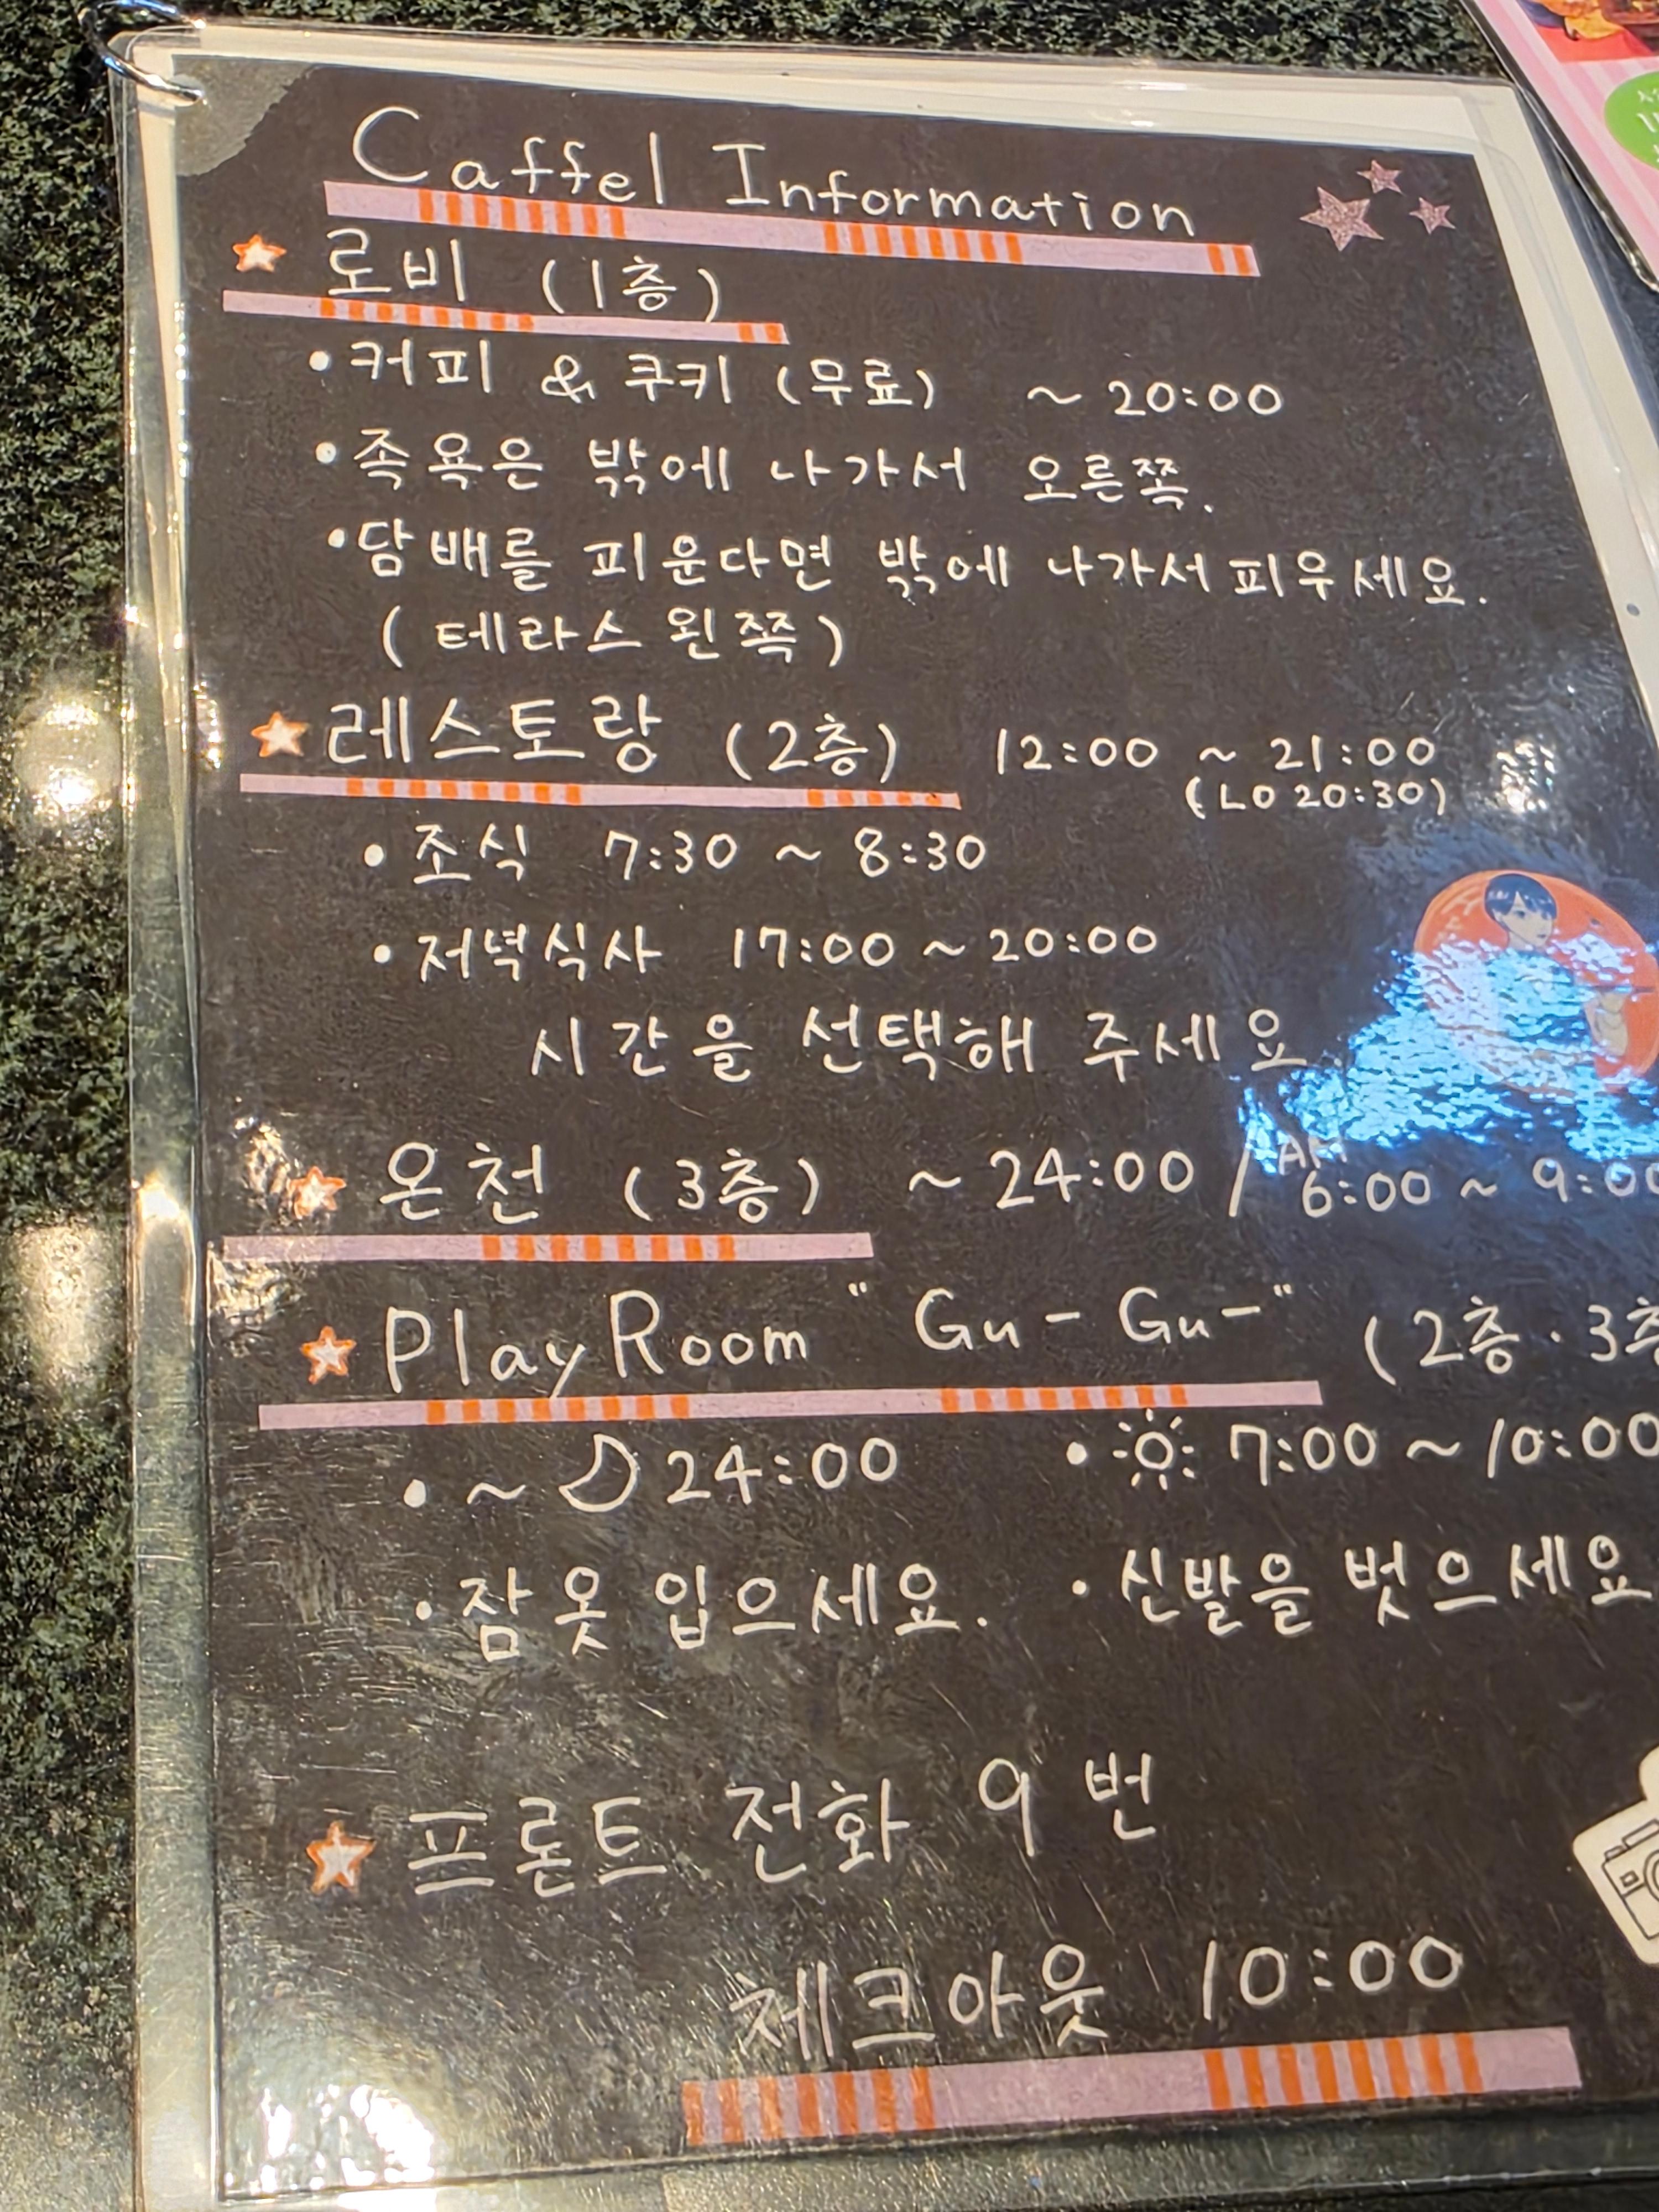 Caffel Information
로비 (1층)
• 커피 & 쿠키 (무료) ~ 20:00
• 족욕은 밖에 나가서 오른쪽.
• 담배를 피운다면 밖에 나가서 피우세요.
( 테라스 왼쪽 )
레스토랑 (2층) 12:00 ~ 21:00
(LO 20:30)
• 조식 7:30 ~ 8:30
• 저녁식사 17:00 ~ 20:00
시간을 선택해 주세요
온천 (3층) ~ 24:00 / AM 6:00 ~ 9:00
Play Room "Gu - Gu-" (2층 · 3층
• ~ 24:00 • 7:00 ~ 10:00
• 잠옷 입으세요. • 신발을 벗으세요
프론트 전화 9번
체크아웃 10:00